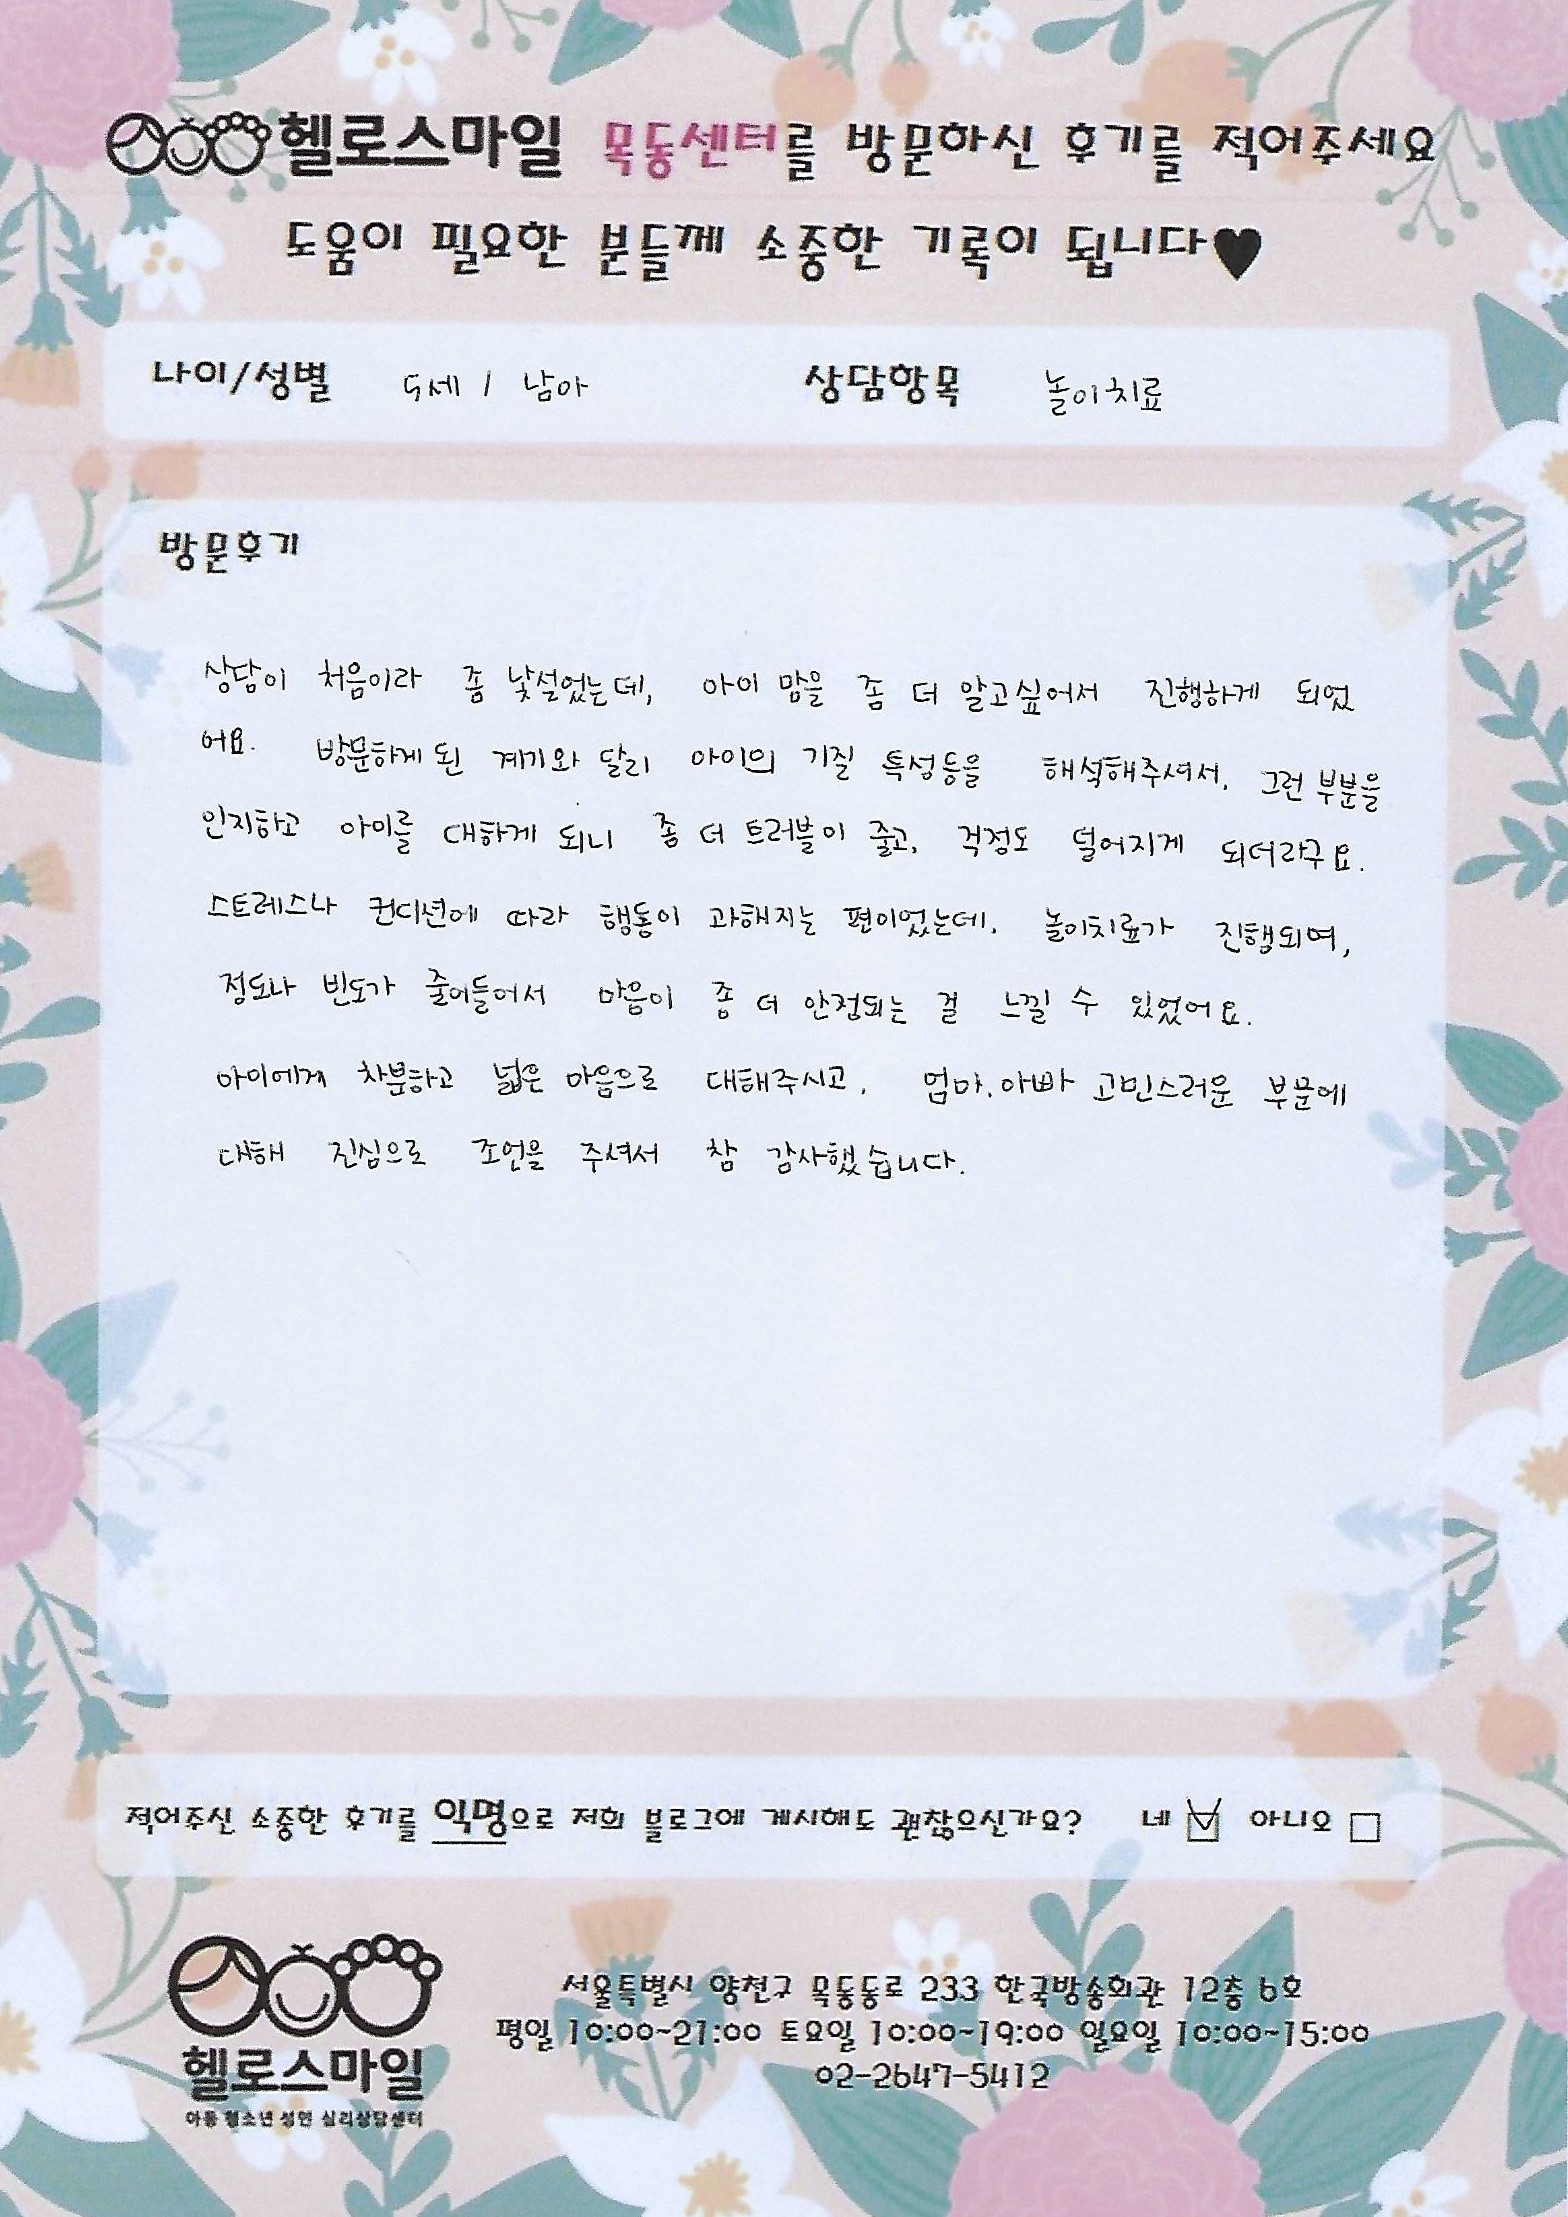 헬로스마일 목동센터를 방문하신 후기를 적어주세요
도움이 필요한 분들께 소중한 기록이 됩니다♥
나이/성별 5세 / 남아 상담항목 놀이치료
방문후기
상담이 처음이라 좀 낯설었는데, 아이 맘을 좀 더 알고싶어서 진행하게 되었
어요. 방문하게 된 계기와 달리 아이의 기질 특성등을 해석해주셔서, 그런 부분을
인지하고 아이를 대하게 되니 좀 더 트러블이 줄고, 걱정도 덜어지게 되더라구요.
스트레스나 컨디션에 따라 행동이 과해지는 편이었는데, 놀이치료가 진행되며,
정도나 빈도가 줄어들어서 마음이 좀 더 안정되는 걸 느낄 수 있었어요.
아이에게 차분하고 넓은 마음으로 대해주시고, 엄마, 아빠 고민스러운 부분에
대해 진심으로 조언을 주셔서 참 감사했습니다.
적어주신 소중한 후기를 익명으로 저희 블로그에 게시해도 괜찮으신가요? 네 ☑ 아니오 □
서울특별시 양천구 목동동로 233 한국방송회관 12층 6호
평일 10:00~21:00 토요일 10:00~19:00 일요일 10:00~15:00
02-2647-5412
헬로스마일
아동 청소년 성인 심리상담센터